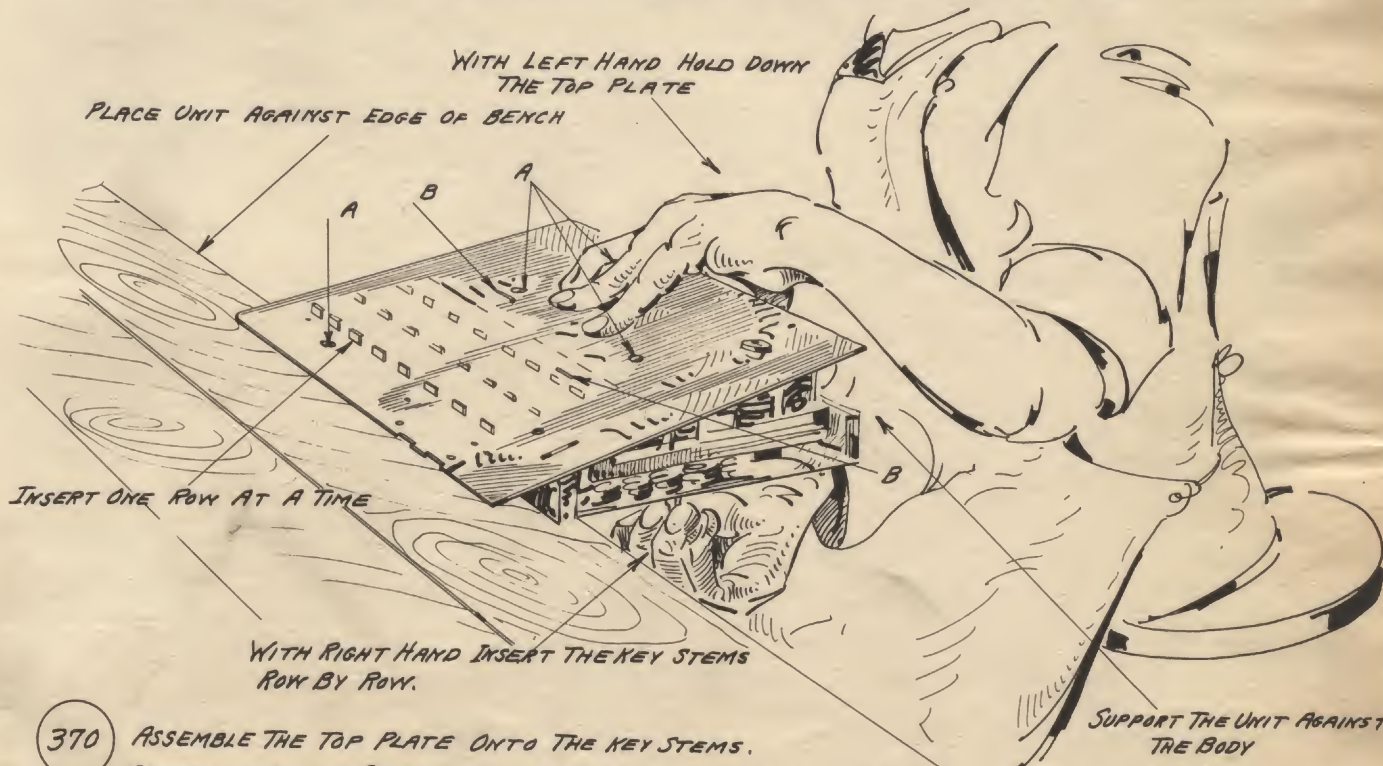 WITH LEFT HAND HOLD DOWN
THE TOP PLATE
PLACE UNIT AGAINST EDGE OF BENCH
A
B
A
B
INSERT ONE ROW AT A TIME
WITH RIGHT HAND INSERT THE KEY STEMS
ROW BY ROW.
SUPPORT THE UNIT AGAINST
THE BODY
370 ASSEMBLE THE TOP PLATE ONTO THE KEY STEMS.